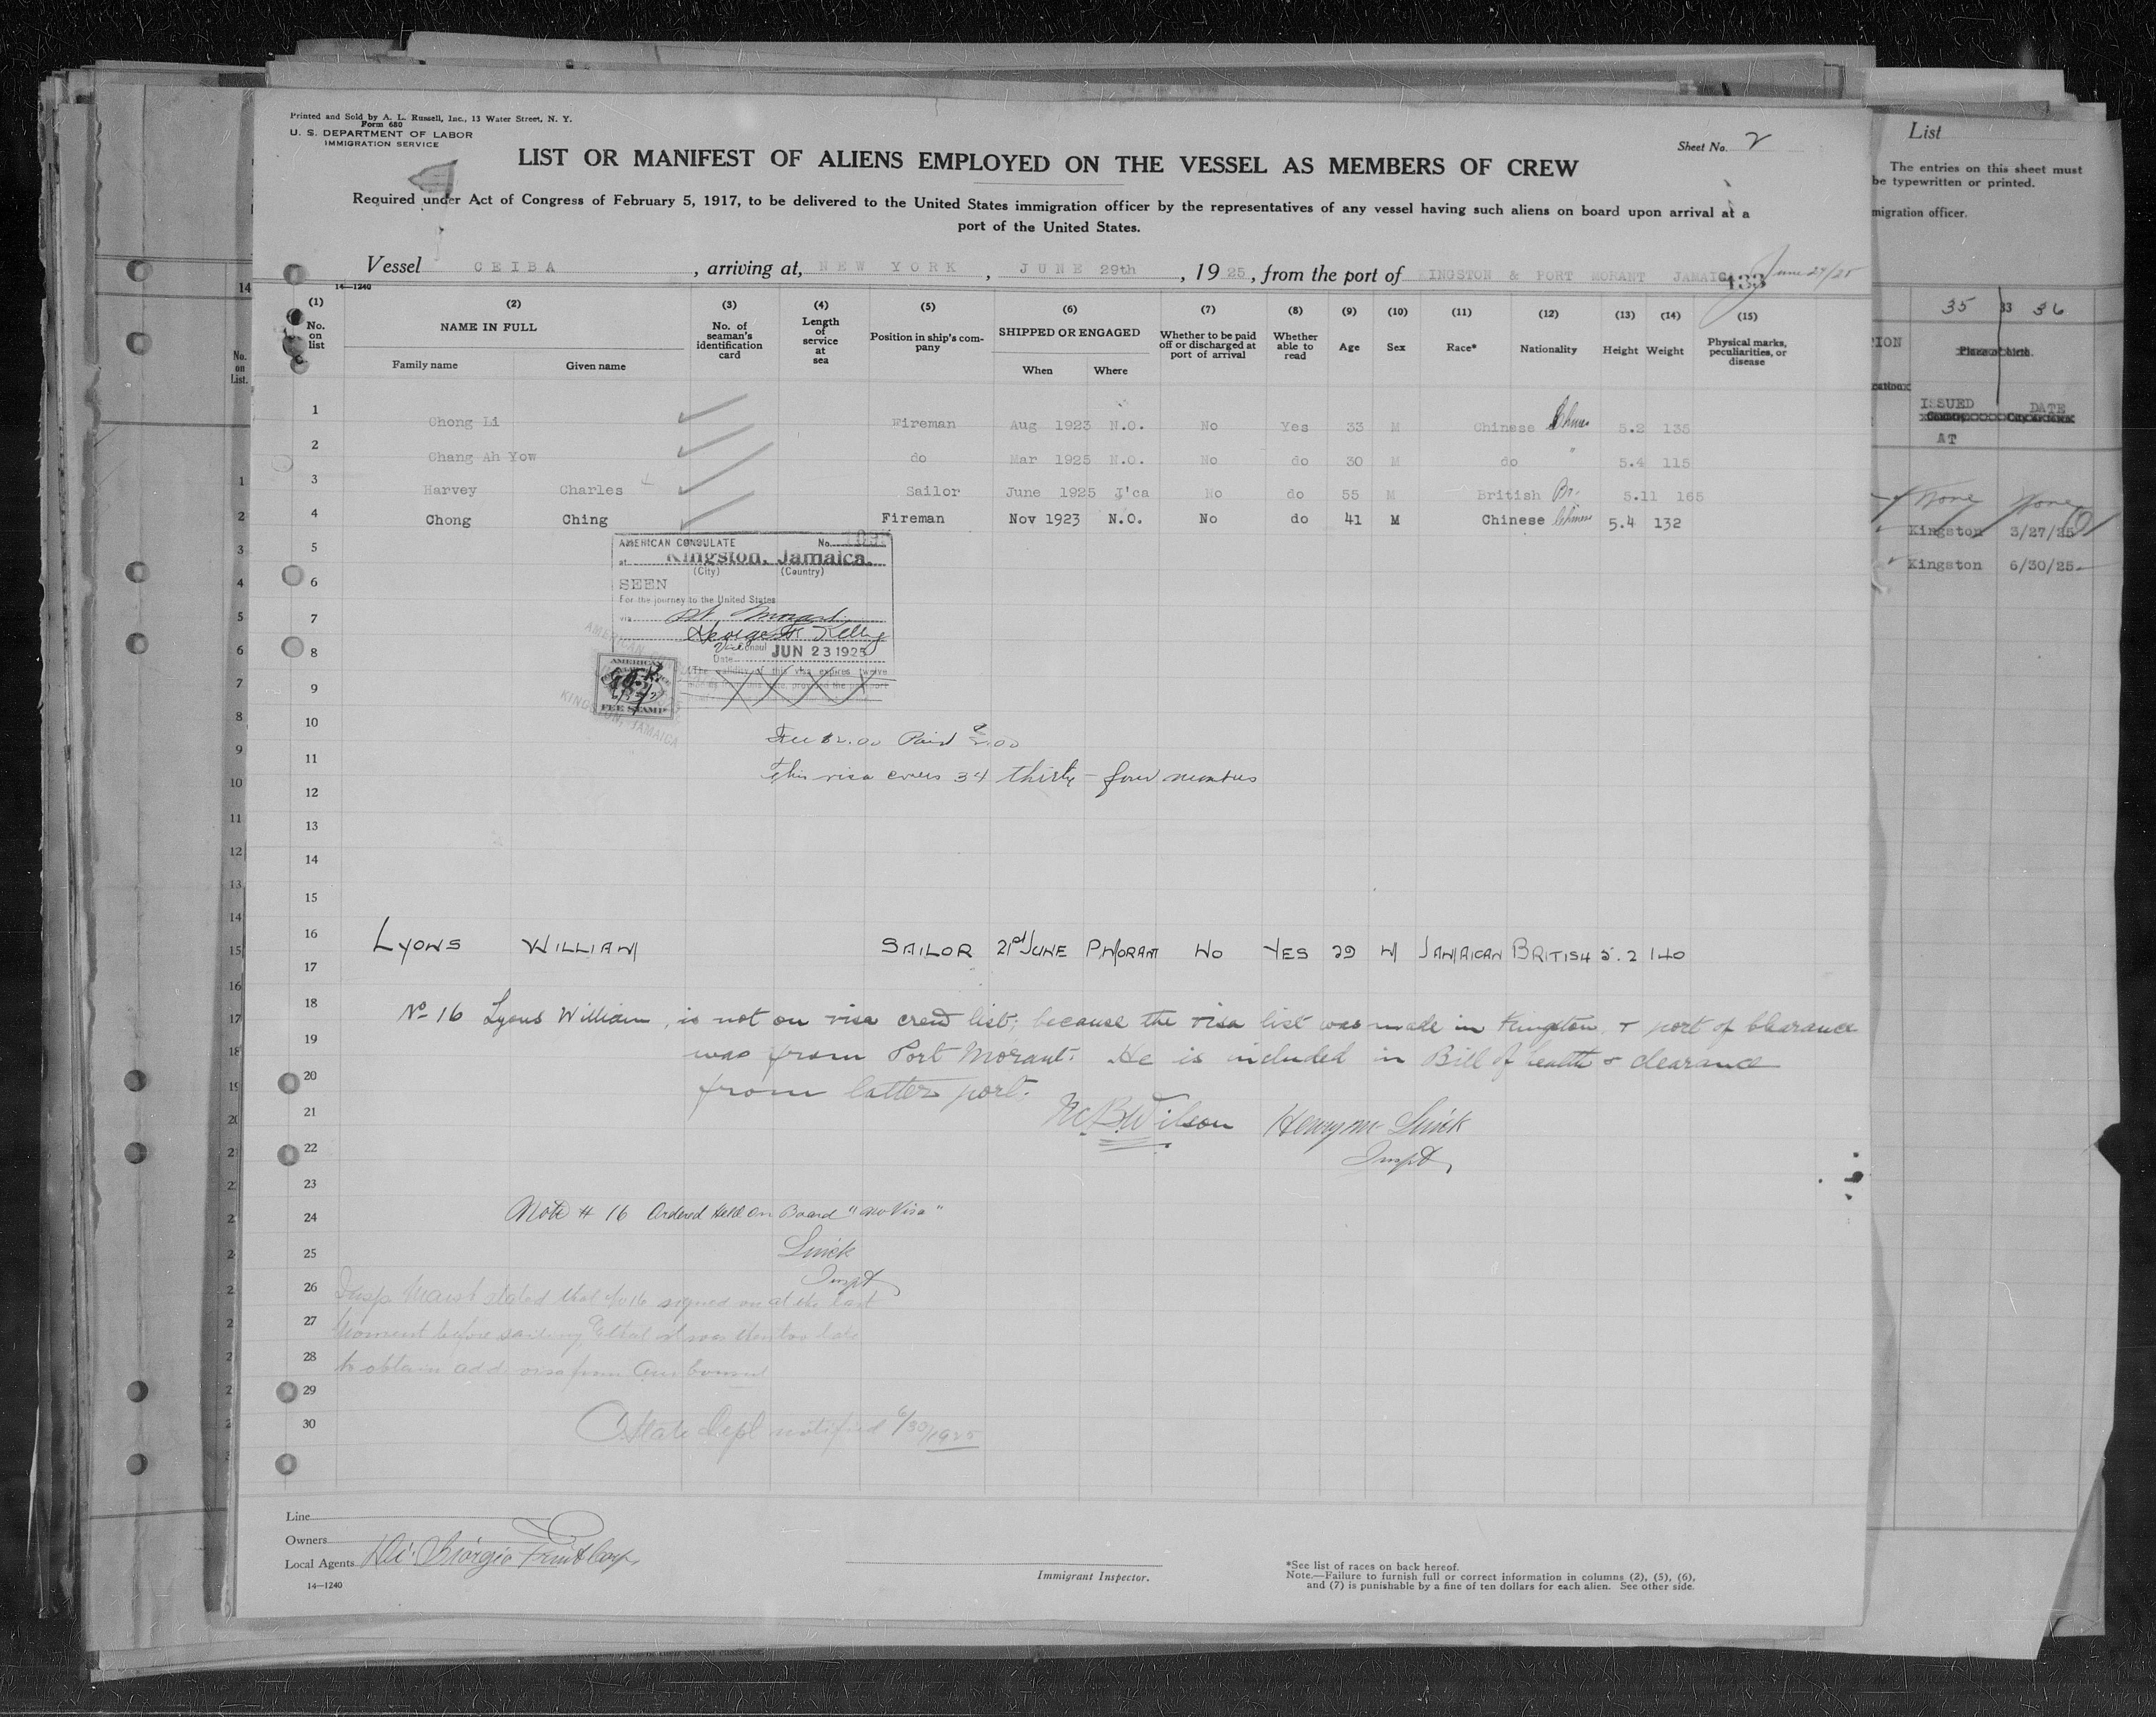 Printed and Sold by A. L. Russell, Inc., 13 Water Street, N. Y.
Form 680
U. S. DEPARTMENT OF LABOR
IMMIGRATION SERVICE
Sheet No. 2
LIST OR MANIFEST OF ALIENS EMPLOYED ON THE VESSEL AS MEMBERS OF CREW
Required under Act of Congress of February 5, 1917, to be delivered to the United States immigration officer by the representatives of any vessel having such aliens on board upon arrival at a
port of the United States.
Vessel CEIBA, arriving at, NEW YORK, JUNE 29th, 1925, from the port of KINGSTON & PORT MORANT JAMAICA June 27/25
133
14—1240
(1) (2) (3) (4) (5) (6) (7) (8) (9) (10) (11) (12) (13) (14) (15)
No. on list
NAME IN FULL
Family name Given name
No. of seaman's identification card
Length of service at sea
Position in ship's company
SHIPPED OR ENGAGED
When Where
Whether to be paid off or discharged at port of arrival
Whether able to read
Age
Sex
Race*
Nationality
Height
Weight
Physical marks, peculiarities, or disease
1 Chong Li Fireman Aug 1923 N.O. No Yes 33 M Chinese Chinese 5.2 135
2 Chang Ah Yow do Mar 1925 N.O. No do 30 M do " 5.4 115
3 Harvey Charles Sailor June 1925 J'ca No do 55 M British Br. 5.11 165
4 Chong Ching Fireman Nov 1923 N.O. No do 41 M Chinese Chinese 5.4 132
5
6
7
8
9
10
11
12
13
14
15
AMERICAN CONSULATE No.
at Kingston, Jamaica.
(City) (Country)
SEEN
For the journey to the United States
via Pt. Morant
Vice Consul
Date JUN 23 1925
The validity of this visa expires twelve
AMERICAN
FEE STAMP
KINGSTON, JAMAICA
Fee $2.00 Paid $2.00
This visa covers 34 thirty-four members
16 LYONS WILLIAM SAILOR 21st JUNE P.MORANT NO YES 29 M JAMAICAN BRITISH 5.2 140
17
18 No 16 Lyons William, is not on visa crew list; because the visa list was made in Kingston, & port of clearance
19 was from Port Morant. He is included in Bill of health & clearance
20 from latter port.
21 Wilson Henry
22 Inspt,
23
24 Note # 16 Ordered Held On Board "No Visa"
25
Inspt
26 Insp. stated that No 16 signed on at the last
27 moment before sailing & that it was then too late
28 to obtain add. visa from Am Consul
29
30 State Dept notified 6/30/1925
Line
Owners
Local Agents Di Giorgio Fruit Corp.
14—1240
Immigrant Inspector.
*See list of races on back hereof.
Note.—Failure to furnish full or correct information in columns (2), (5), (6),
and (7) is punishable by a fine of ten dollars for each alien. See other side.
List
The entries on this sheet must
be typewritten or printed.
migration officer.
35 33 36
Place of birth.
ISSUED DATE
AT
None None
Kingston 3/27/25
Kingston 6/30/25
14
No. on List.
1
2
3
4
5
6
7
8
9
10
11
12
13
14
15
16
17
18
19
20